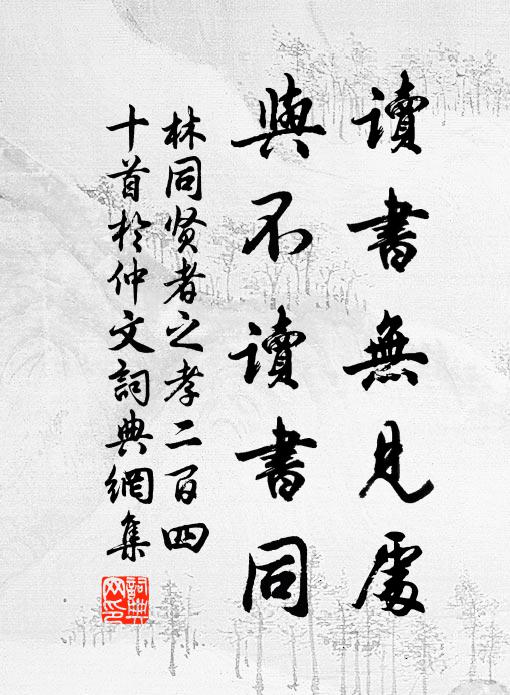 讀書無見處
與不讀書同
林同賢者之孝二百四
十首於仲文詞典網集